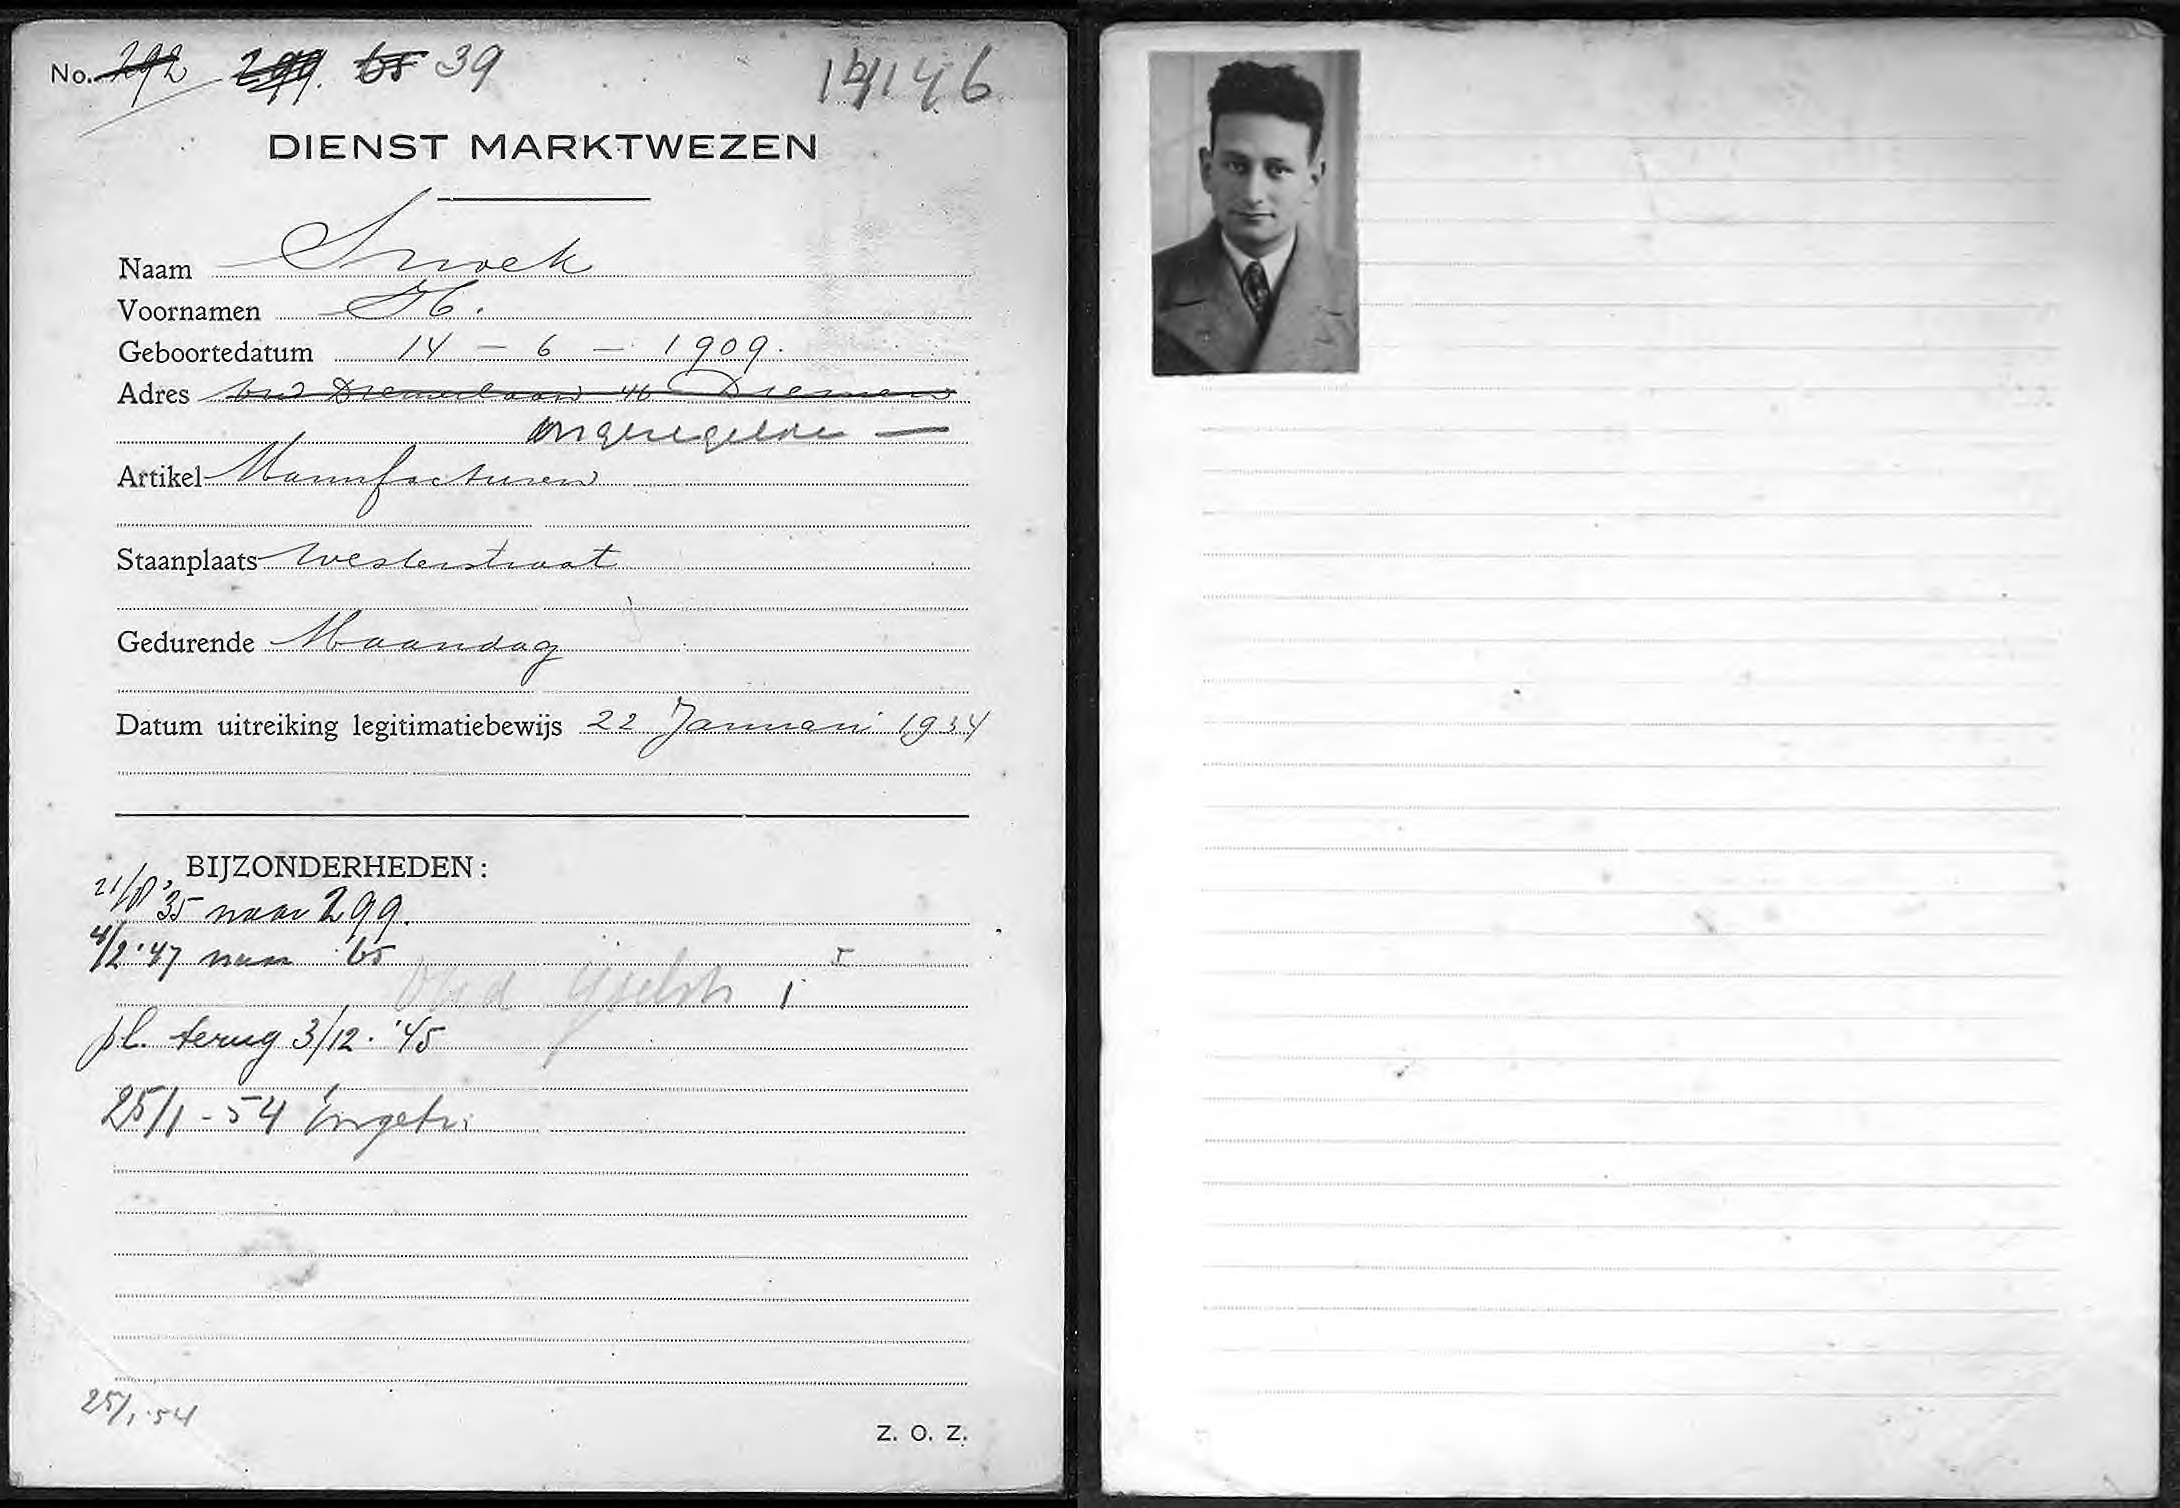 No. 292 299. 65 39 14146
DIENST MARKTWEZEN
Naam Snoek
Voornamen H.
Geboortedatum 14 - 6 - 1909.
Adres Diemerlaan 46 Diemen
ongeregelde —
Artikel Manufacturen
Staanplaats Westerstraat
Gedurende Maandag
Datum uitreiking legitimatiebewijs 22 Januari 1934
BIJZONDERHEDEN:
21/8 '35 naar 299.
4/2 '47 naar 65
pl. terug 3/12. '45
25/1 - 54 Ingetr.
25/1.54
Z. O. Z.